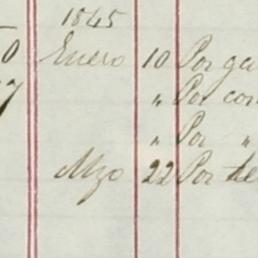 1845
0 Enero 10 Por
7 " Por con
" Por "
Mzo 22 Por